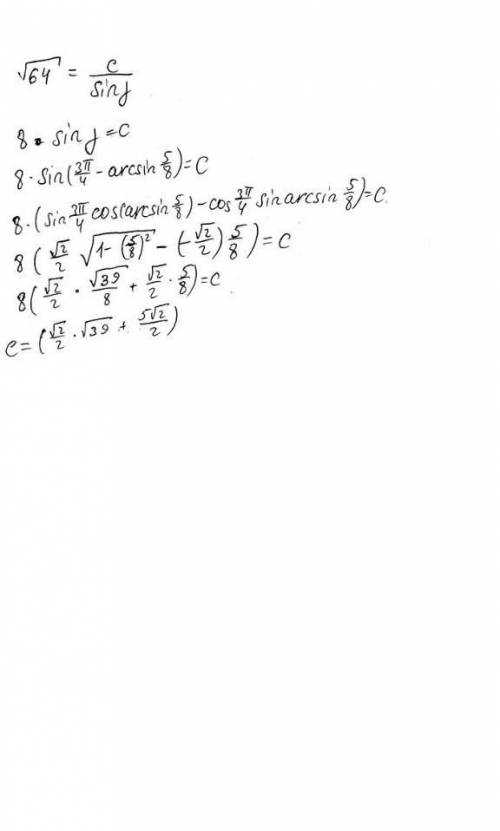 √64 = c/sin j
8 · sin j = c
8 · sin(3π/4 - arcsin 5/8) = c
8 · (sin 3π/4 cos(arcsin 5/8) - cos 3π/4 sin arcsin 5/8) = c.
8 (√2/2 √(1-(5/8)²) - (-√2/2) 5/8) = c
8(√2/2 · √39/8 + √2/2 · 5/8) = c
c = (√2/2 · √39 + 5√2/2)